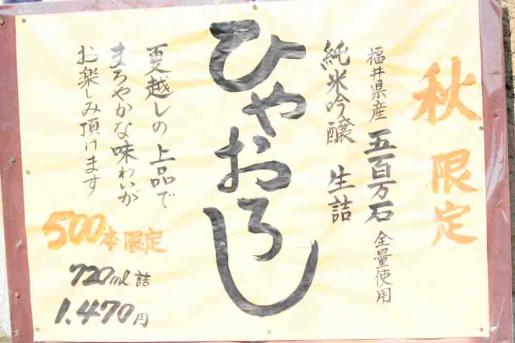 秋限定
福井県産 五百万石 全量使用
純米吟醸 生詰
ひやおろし
夏越しの上品で
まろやかな味わいが
お楽しみ頂けます
500本限定
720ml詰
1,470円